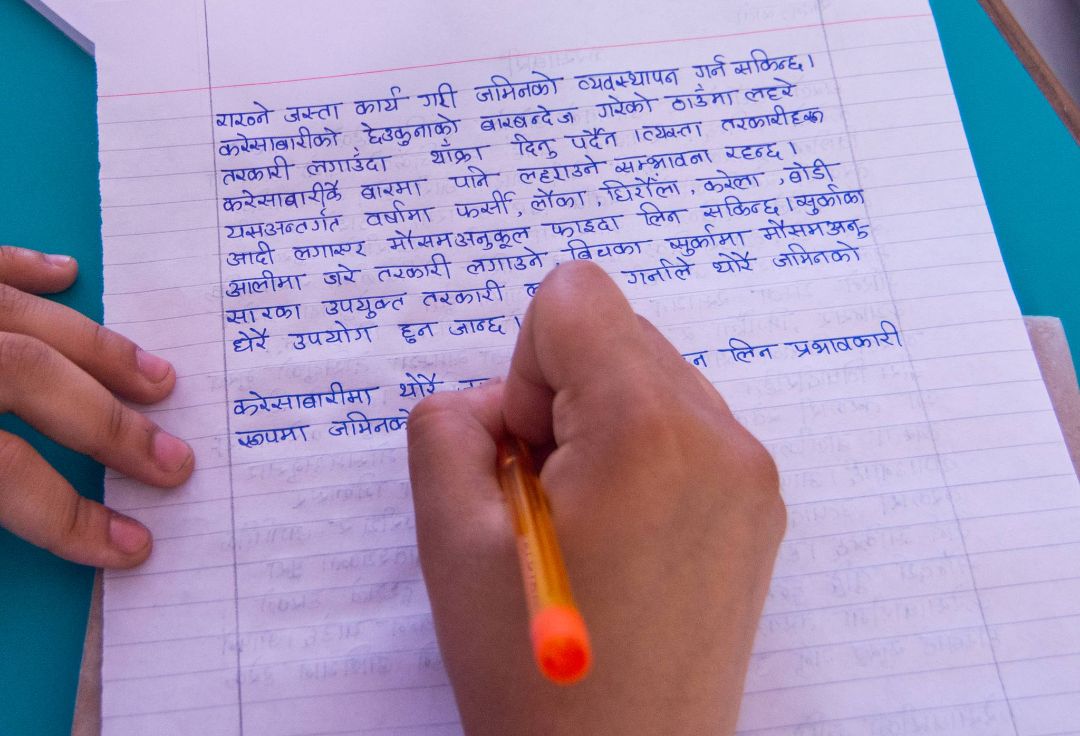 राख्ने जस्ता कार्य गरी जमिनको व्यवस्थापन गर्न सकिन्छ।
करेसाबारीको, देउकुनाको बारबन्देज गरेको ठाउँमा लहरे
तरकारी लगाउँदा थाँक्रा दिनु पर्दैन ।त्यस्ता तरकारीहरू
करेसाबारीकै बारमा पनि लहराउने सम्भावना रहन्छ।
यसअन्तर्गत वर्षामा फर्सी, लौका, घिरौंला, करेला, बोडी
आदी लगाएर मौसमअनुकूल फाइदा लिन सकिन्छ।सुर्काका
आलीमा जरे तरकारी लगाउने, बिचका सुर्कामा मौसमअनु-
सारका उपयुक्त तरकारी गर्नाले थोरै जमिनको
धेरै उपयोग हुन जान्छ।
करेसाबारीमा थोरै लिन प्रभावकारी
रूपमा जमिनको